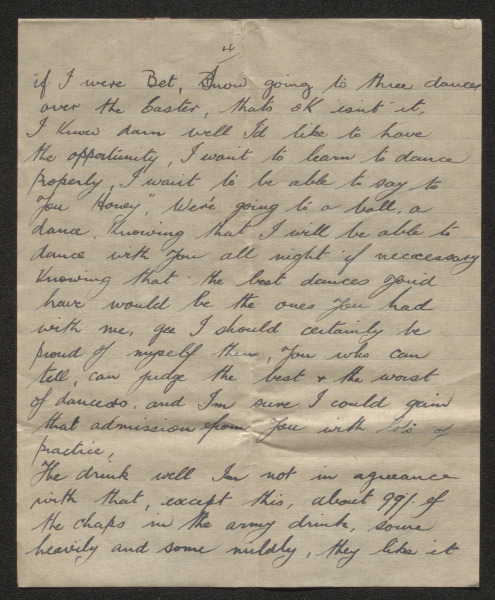 4
if I were Bet, Snow going to three dances
over the Easter, thats OK isn't it,
I know darn well I'd like to have
the opportunity, I want to learn to dance
properly, I want to be able to say to
You "Honey", We're going to a ball, a
dance, Knowing that I will be able to
dance with You all night if neccessary
Knowing that the best dances You'd
have would be the ones You had
with me, gee I should certainly be
proud of myself then, You who can
tell, can judge the best + the worst
of dancers, and I'm sure I could gain
that admission from You with lots of
practice,
The drink well I'm not in agreeance
with that, except this, about 99% of
the chaps in the army drink, some
heavily and some mildly, they like it